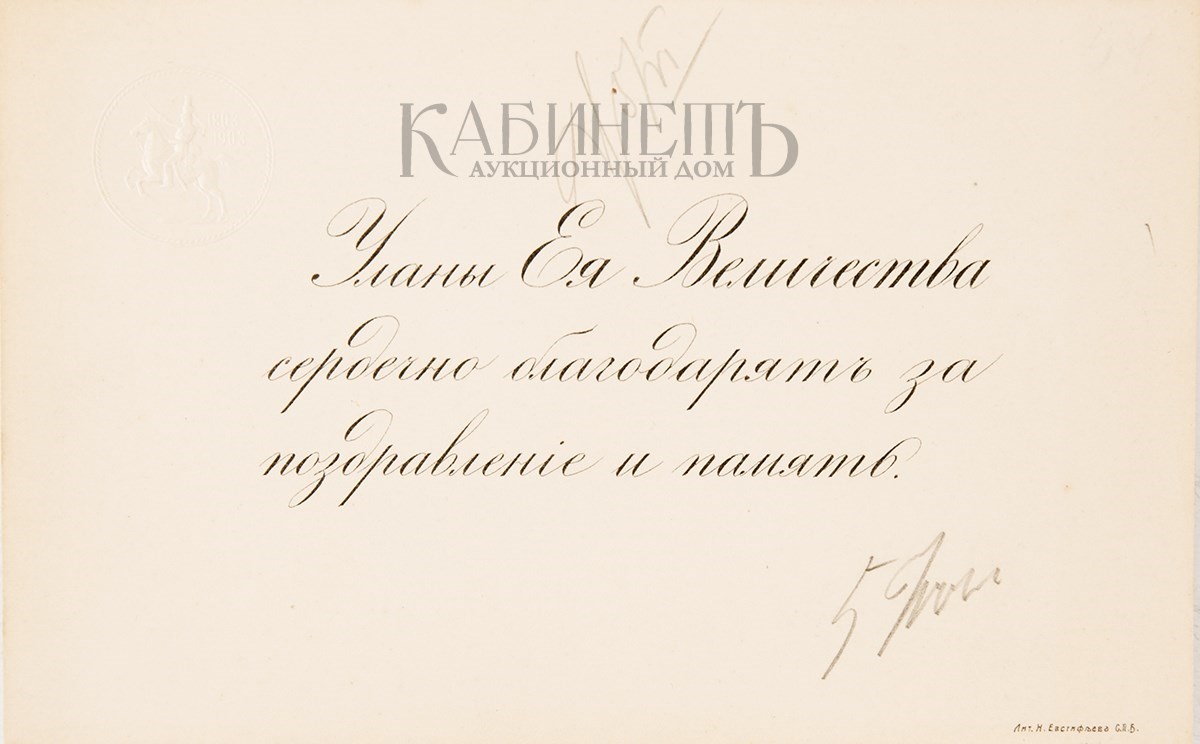 КАБИНЕТЪ
АУКЦИОННЫЙ ДОМ
Уланы Ея Величества
сердечно благодарятъ за
поздравленіе и память.
5
Лит. Н. Евстифѣева С.П.Б.